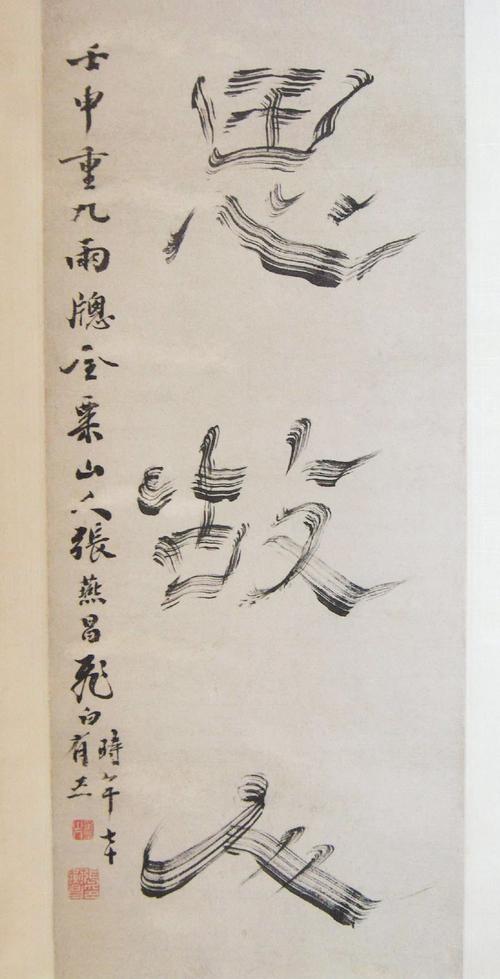 思故人
壬申重九雨牕金粟山人張燕昌飛白時年七十
有五